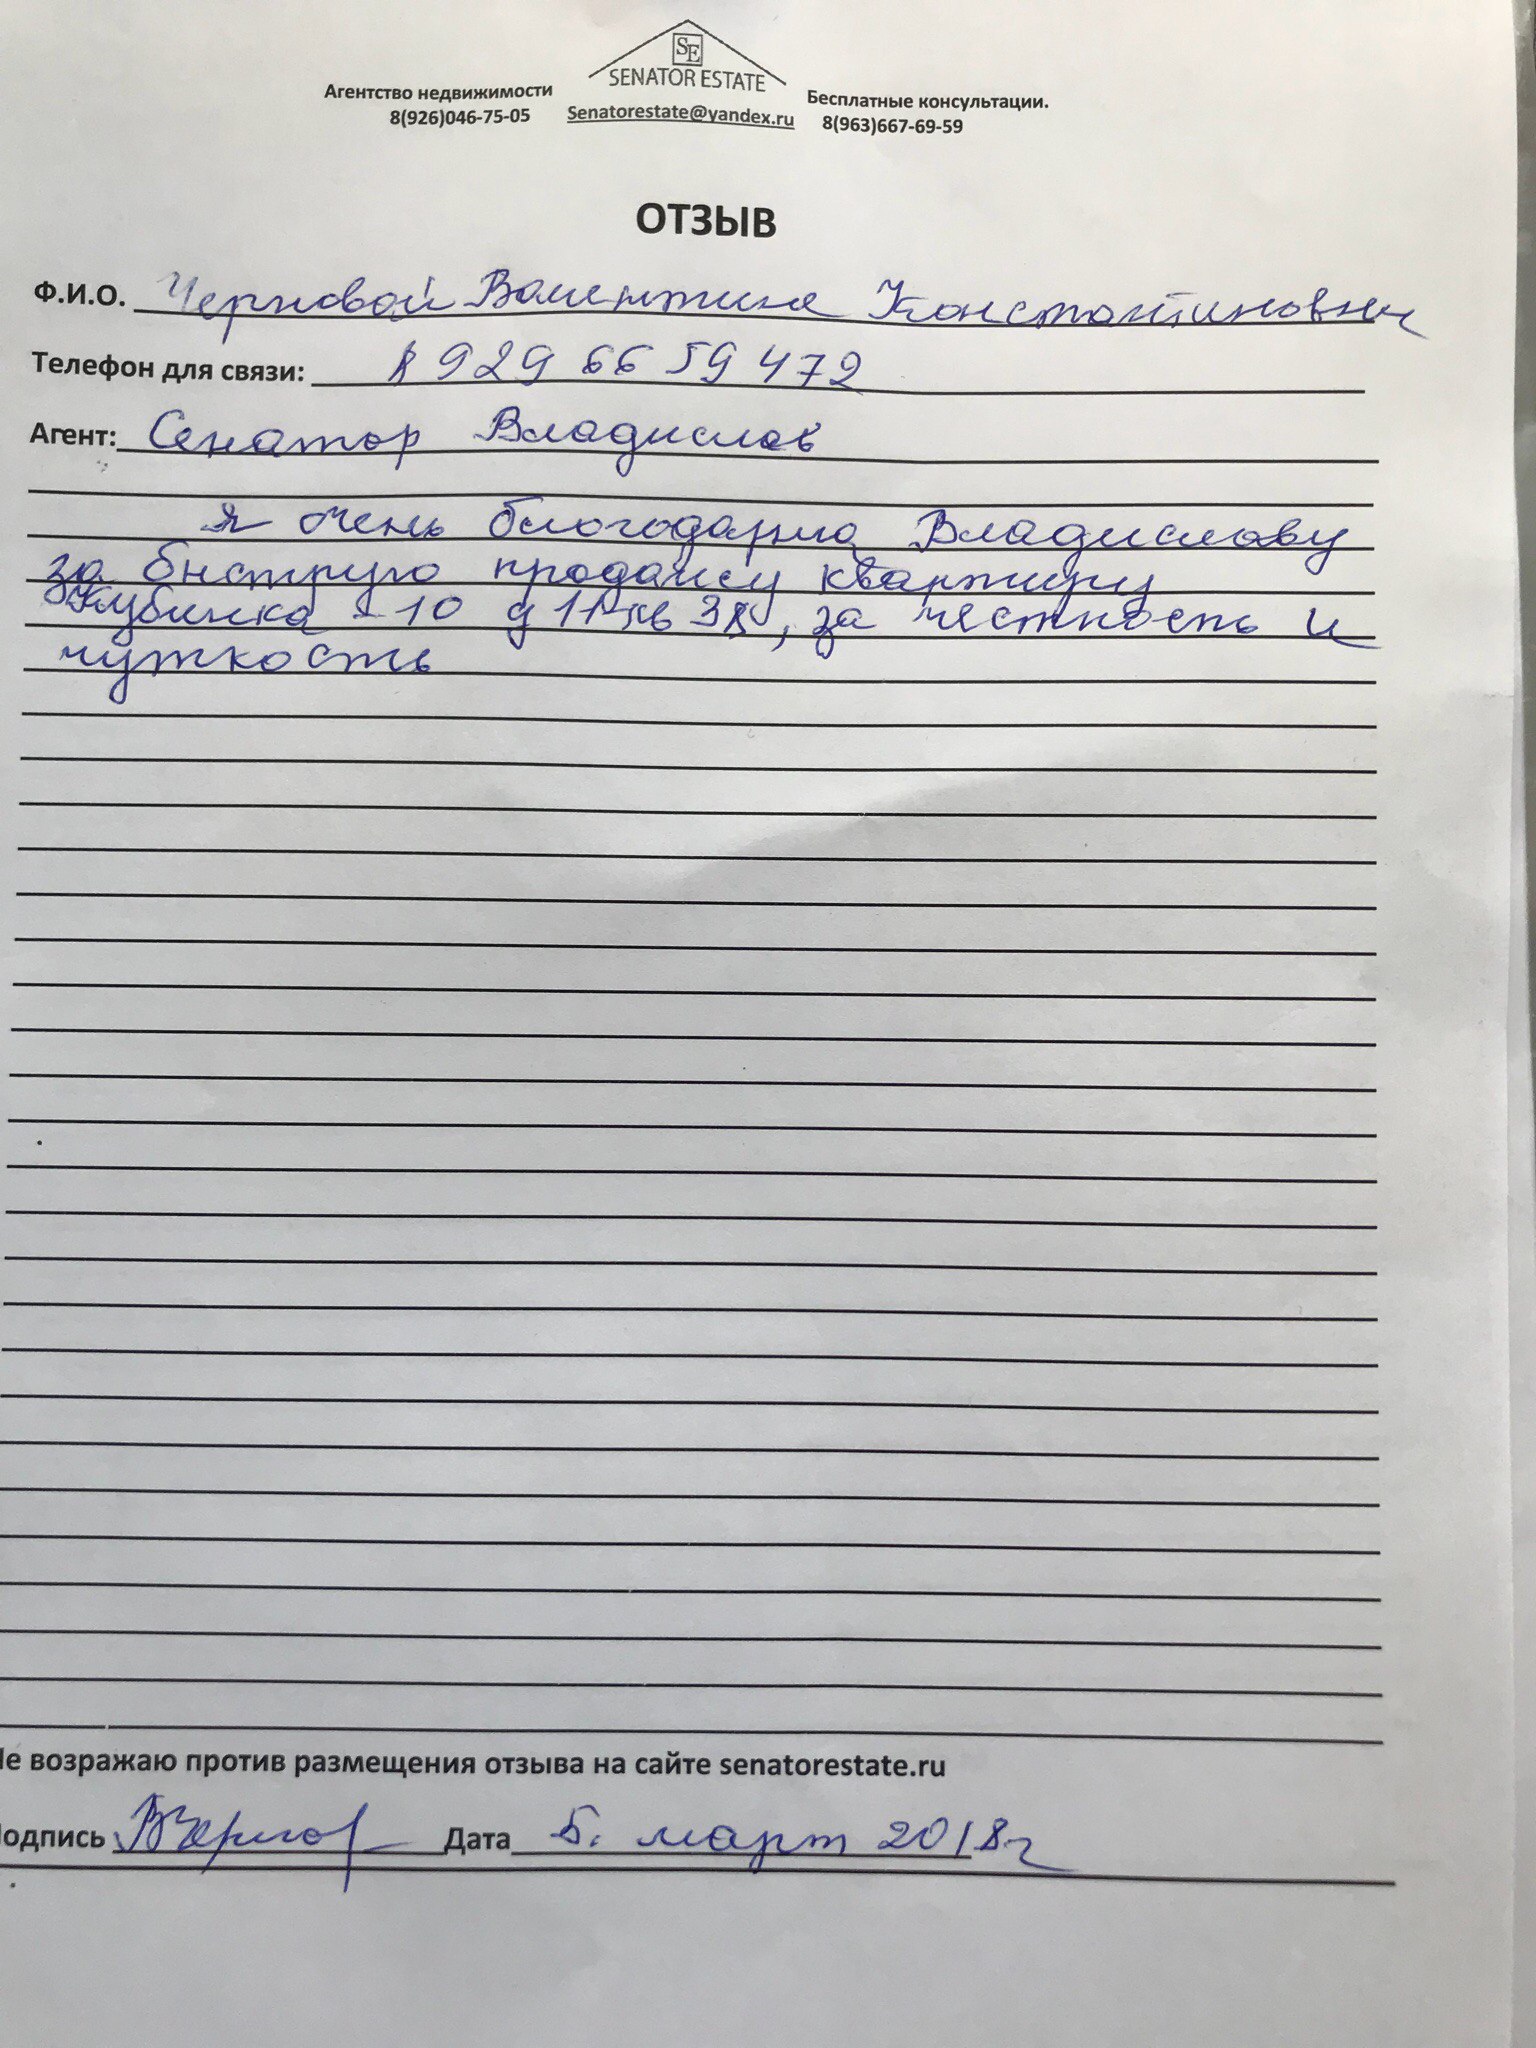 SE
SENATOR ESTATE
Агентство недвижимости
8(926)046-75-05
Senatorestate@yandex.ru
Бесплатные консультации.
8(963)667-69-59
ОТЗЫВ
Ф.И.О. Черновой Валентина Константиновны
Телефон для связи: 8 929 66 59 472
Агент: Сенатор Владислав
я очень благодарна Владиславу
за быструю продажу квартиры
Кубинка - 10 д 11 кв 38, за честность и
чуткость
Не возражаю против размещения отзыва на сайте senatorestate.ru
Подпись Дата 5. март 2018г